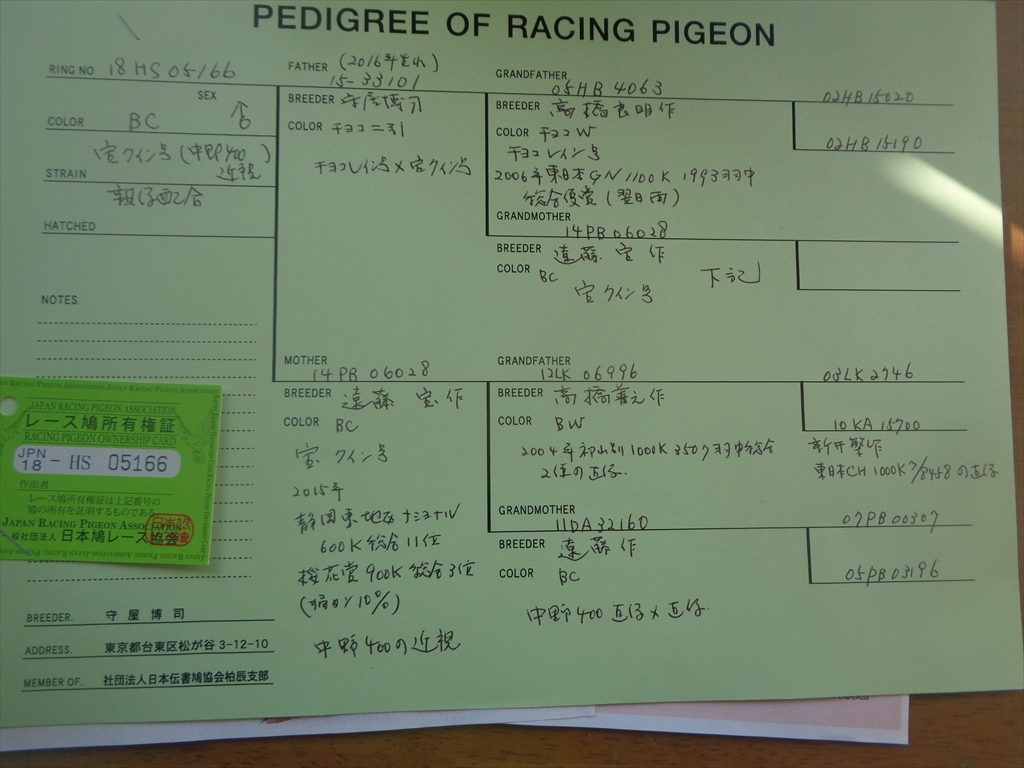 PEDIGREE OF RACING PIGEON
RING NO 18HS05166
SEX ♂
COLOR BC
宝クイン号(中野400)
近親
STRAIN
親仔配合
HATCHED
NOTES
FATHER (2016年生れ)
15-33101
BREEDER 守屋博司
COLOR チョコ二引
チョコレイン号×宝クイン号
GRANDFATHER
05HB 4063
BREEDER 高橋良明作
COLOR チョコW
チョコレイン号
2006年東日本GN 1100K 1993羽中
総合優賞(翌日両)
02HB15020
02HB15190
GRANDMOTHER
14PB06028
BREEDER 遠藤 宝 作
COLOR BC
宝クイン号
下記
MOTHER
14PB 06028
BREEDER 遠藤 宝 作
COLOR BC
宝クイン号
2015年
静岡東地区ナショナル
600K総合11位
桜花賞900K総合3位
中野400の近親
GRANDFATHER
12LK 06996
BREEDER 高橋
COLOR BW
2004年 1000K 3507羽中総合
2位の直仔.
03LK2746
10KA15700
新井
東日本CH1000K 7/8458の直仔
GRANDMOTHER
11DA32160
BREEDER 遠藤 作
COLOR BC
中野400直仔×直仔.
07PB00307
05PB03196
JAPAN RACING PIGEON ASSOCIATION
レース鳩所有権証
RACING PIGEON OWNERSHIP CARD
JPN
18 - HS 05166
作出者
レース鳩所有権証は上記番号の
鳩の所有を証明するものである。
JAPAN RACING PIGEON ASSOCIATION
一般社団法人 日本鳩レース協会
BREEDER. 守屋博司
ADDRESS. 東京都台東区松が谷 3-12-10
MEMBER OF. 社団法人日本伝書鳩協会柏辰支部